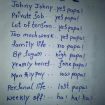 Johny Johny yes papa!
Private Job yes papa!
Lot of tention yes papa!
Too much work yes papa!
Family life no papa!
BP, Sugar high papa!
Yearly bonus joke papa!
Monthly pay low papa!
Personal life lost papa!
Weekly off ha! ha! ha!